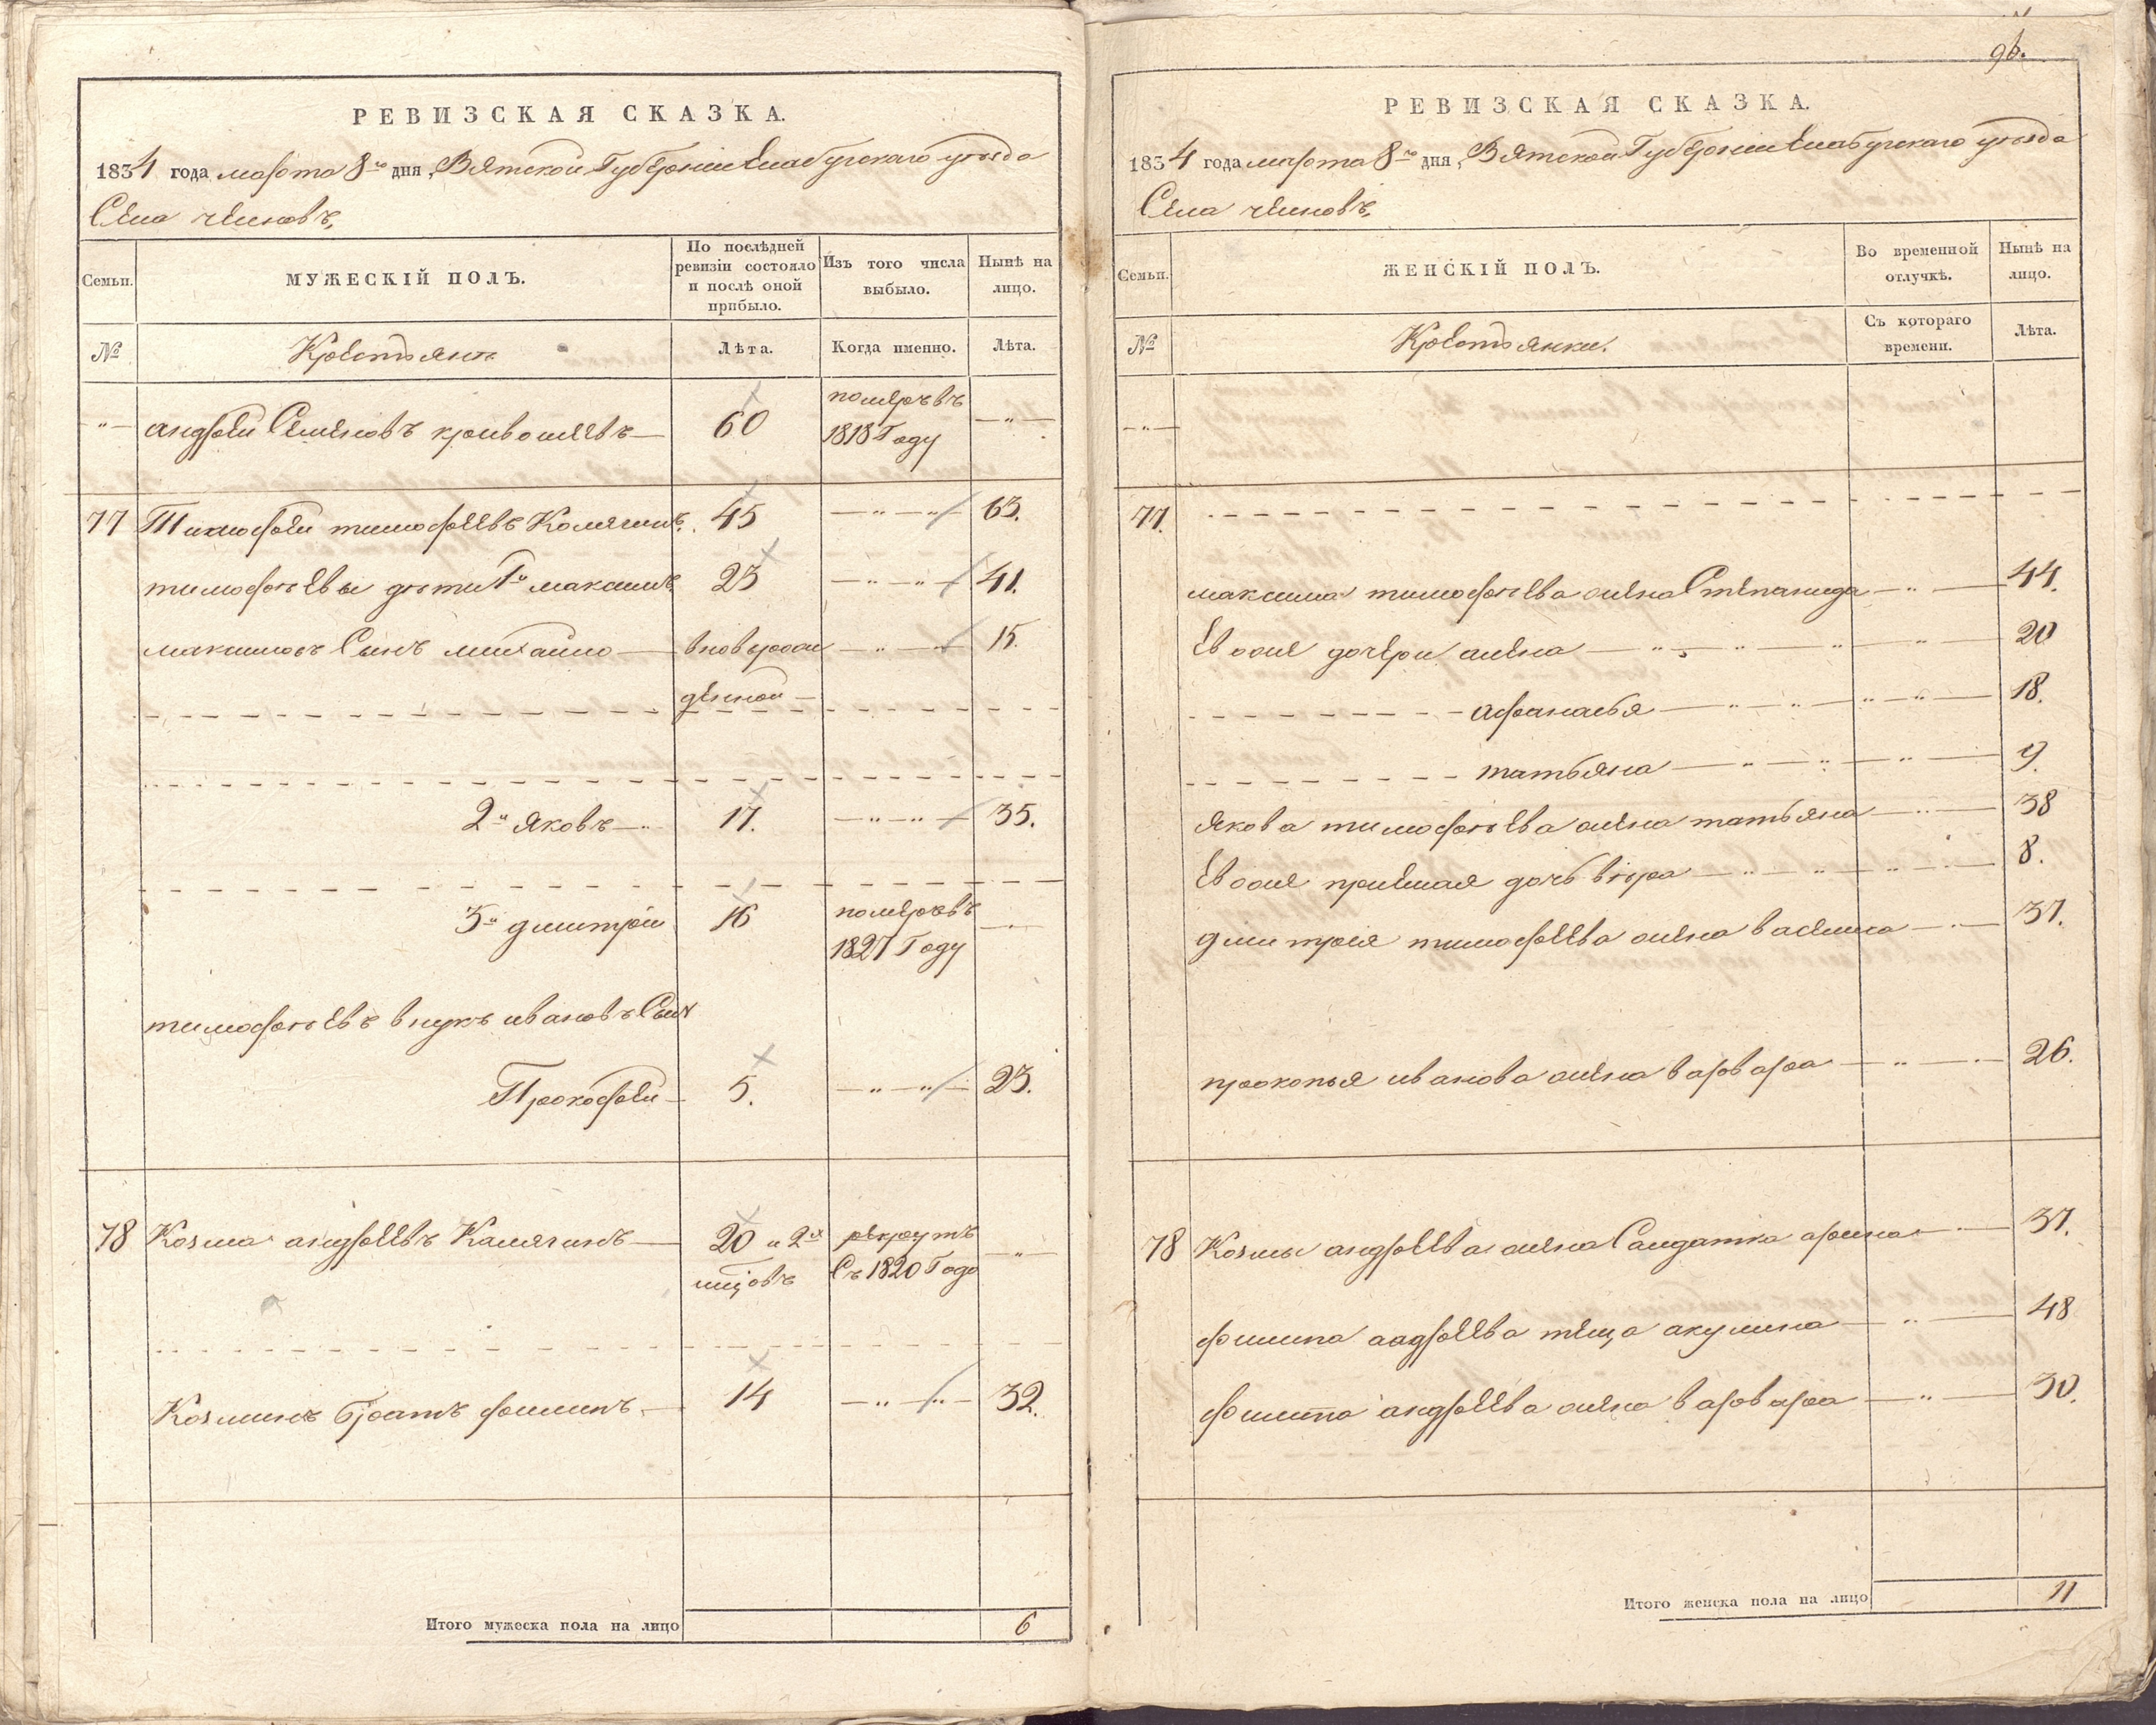 РЕВИЗСКАЯ СКАЗКА.
1834 года марта 8го дня, Вятской Губернiи Елабугскаго уѣзда
Села челновъ,
Семьи.
МУЖЕСКІЙ ПОЛЪ.
По послѣдней ревизіи состояло и послѣ оной прибыло.
Изъ того числа выбыло.
Нынѣ на лицо.
№
Крестьяне
Лѣта.
Когда именно.
Лѣта.
-"- андрей Семеновъ кривошеевъ — 60 померъ въ — " —
1818 Году
77 Тимофей тимофеевъ Комягинъ. 45 — " — " — 63.
тимофѣевы дѣти 1й максимъ 23 — " — " — 41.
максимовъ Сынъ михайло — вновьрож — " — 15.
денной —
2й яковъ — " 17. — " — " — 35.
3й дмитрiй 16 померъ въ —
1827 Году
тимофѣевъ внукъ ивановъ Сынъ
Прокофей — 5. — " — " — 23.
78 Козма андреевъ Камягинъ — 20 и 2х рекрутъ — " —
мцовъ Съ 1820 Года
Козминъ братъ филипъ — 14 — " — " — 32.
Итого мужеска пола на лицо 6
96.
РЕВИЗСКАЯ СКАЗКА.
1834 года марта 8го дня, Вятской Губернiи Елабугскаго уѣзда
Села челновъ,
Семьи.
ЖЕНСКІЙ ПОЛЪ.
Во временной отлучкѣ.
Нынѣ на лицо.
№
Крестьянки.
Съ котораго времени.
Лѣта.
— " —
77.
максима тимофѣева жена Степанида — " — 44.
Евоже дочери алена — " — " — " — 20
афанасья — " — " — " — 18.
татьяна — " — " — " — 9.
якова тимофѣева жена татьяна — " — 38
Евоже прiемная дочь вѣра — " — " — " — 8.
дмитрiя тимофеева жена василиса — " — 37.
прокопья иванова жена варвара — " — 26.
78 Козмы андреева жена Салдатка арина — " — 37.
филипа андреева теща акулина — " — 48
филипа андреева жена варвара — " — 30.
Итого женска пола на лицо 11